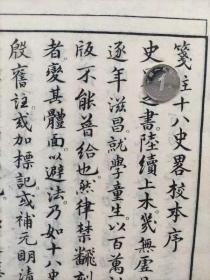 箋註十八史畧校本序
史之書陸續上木幾無虛
逐年滋昌就學童生以百萬
版不能普給也然律禁飜刻
者變其體面以避法乃如十八史
殷舊註或加標記或補元明清